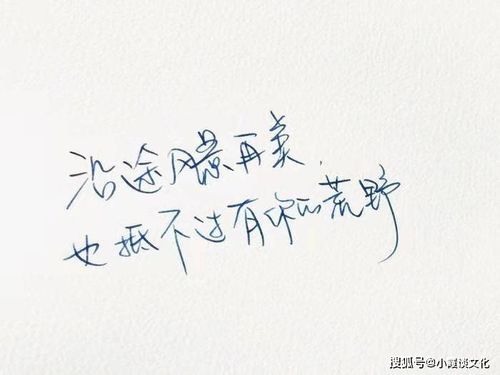 沿途风景再美，
也抵不过有你的荒野
搜狐号@小霞谈文化